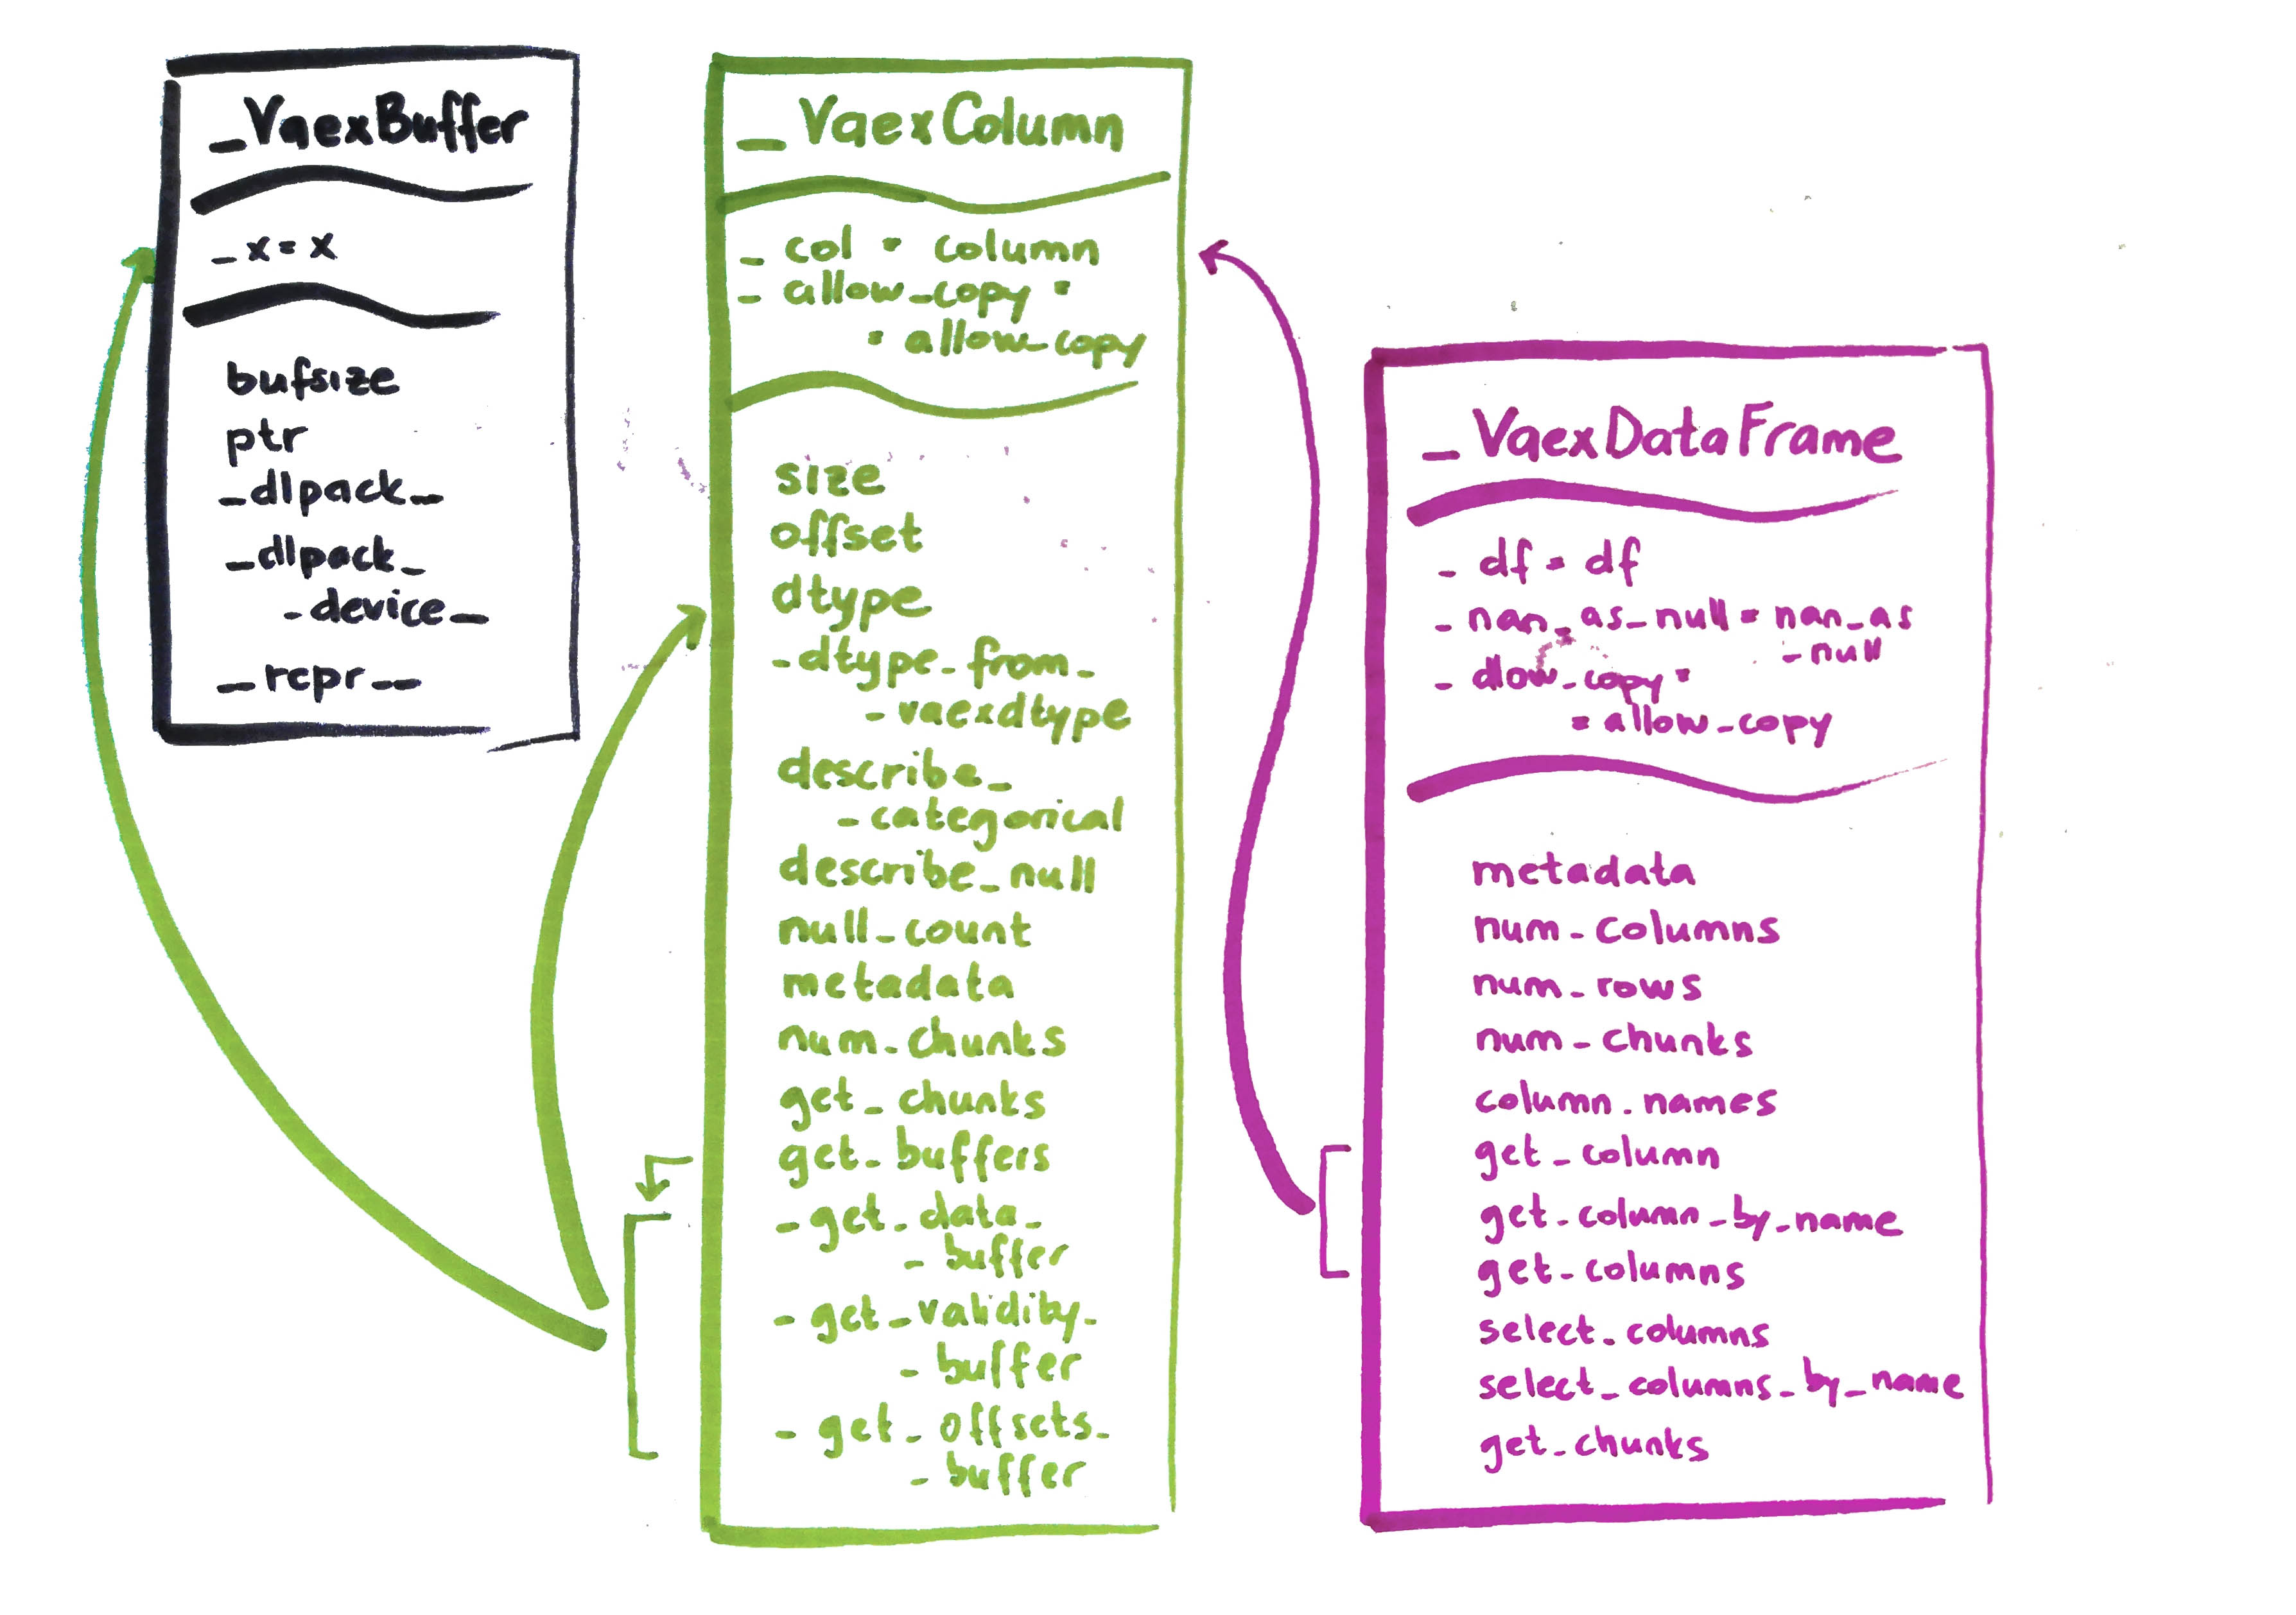 _VaexBuffer
_x = x
bufsize
ptr
_dlpack_
_dlpack_
-device_
__repr__
_VaexColumn
_ col = column
_ allow_copy =
= allow_copy
size
offset
dtype
_dtype_from_
-vaexdtype
describe_
-categorical
describe_null
null_count
metadata
num_chunks
get_chunks
get_buffers
_get_data_
- buffer
_get_validity_
- buffer
_get_offsets_
- buffer
_VaexDataFrame
_ df = df
_ nan_as_null = nan_as
-null
_ allow_copy =
= allow_copy
metadata
num_columns
num_rows
num_chunks
column_names
get_column
get_column_by_name
get_columns
select_columns
select_columns_by_name
get_chunks